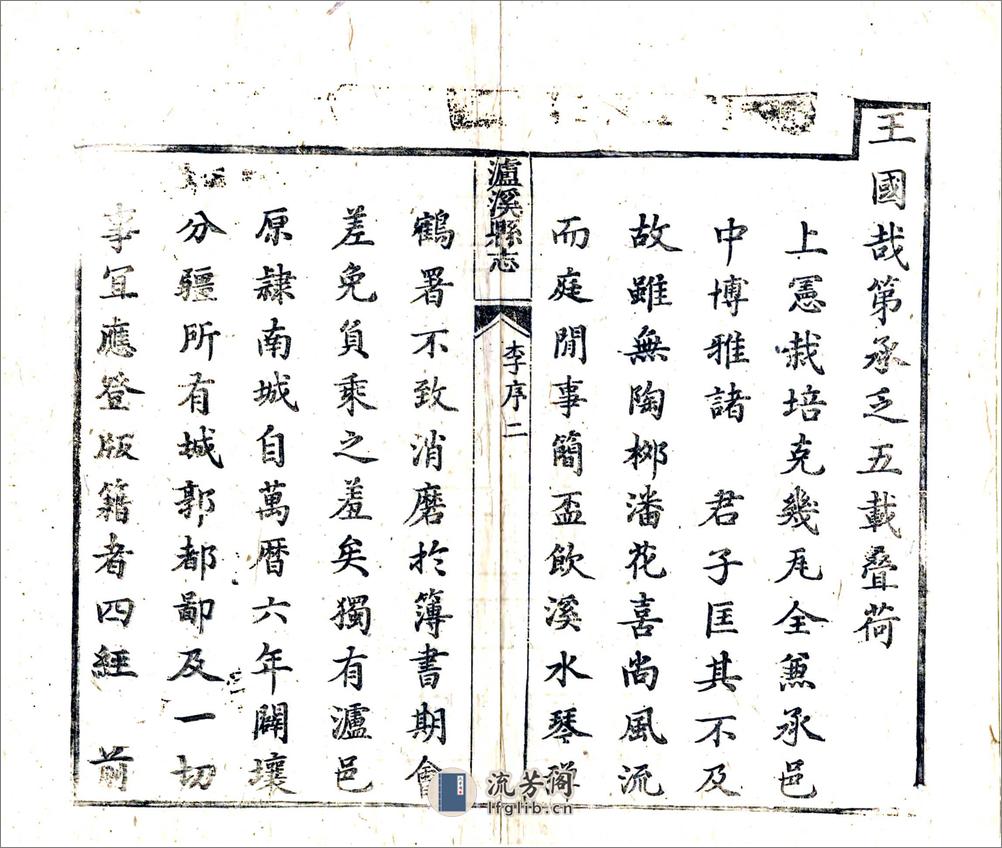 王國哉第承乏五載疊荷
上憲栽培克幾瓦全兼承邑
中博雅諸　君子匡其不及
故雖無陶柳潘花喜尚風流
而庭閒事簡盃飲溪水琴
瀘溪縣志
李序二
鶴署不致消磨於簿書期會
差免負乘之羞矣獨有瀘邑
原隸南城自萬曆六年闢壤
分疆所有城郭都鄙及一切
事宜應登版籍者四經　前
流芳閣
lfglib.cn